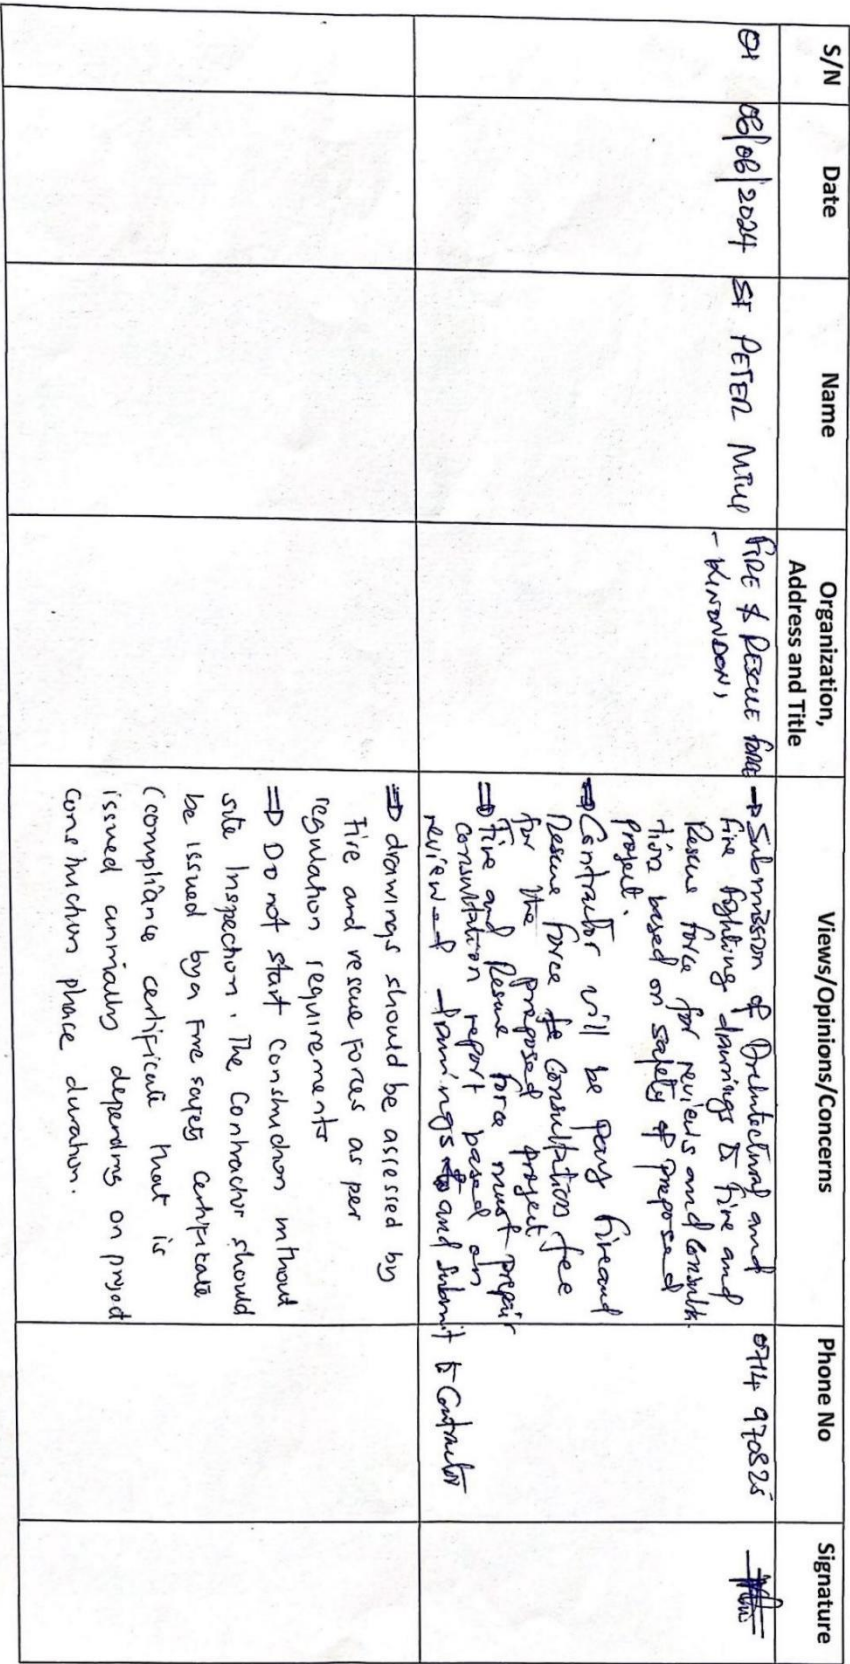 S/N
Date
Name
Organization,
Address and Title
Views/Opinions/Concerns
Phone No
Signature
01
06/06/2024
SF PETER MTUI
FIRE & RESCUE FORCE
- KINONDONI
⇒ Submission of Architectural and
fire fighting drawings to Fire and
Rescue force for reviews and consulta-
tion based on safety of proposed
project.
⇒ Contractor will be pay fire and
Rescue force consultation fee
for the proposed project
⇒ Fire and Rescue force must prepair
consultation report based on
reviewed drawings and submit to Contractor
0714 970825
⇒ drawings should be assessed by
Fire and rescue forces as per
regulation requirements
⇒ Do not start construction without
site Inspection. The Contractor should
be issued by a Fire safety certificate
(compliance certificate that is
issued annually depending on project
construction phace duration.